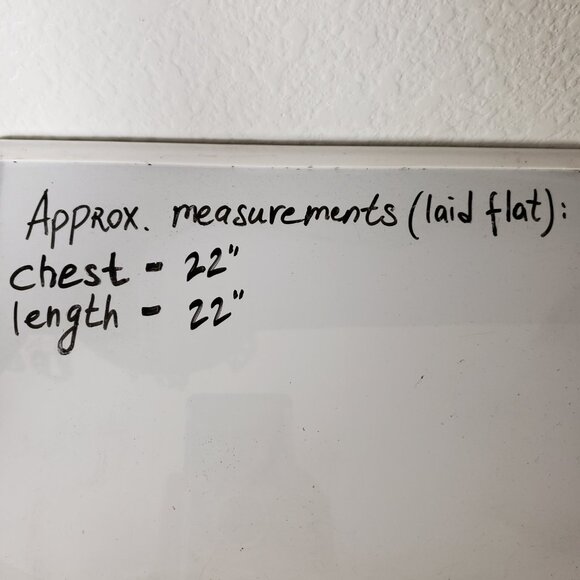 Approx. measurements (laid flat):
chest - 22"
length - 22"